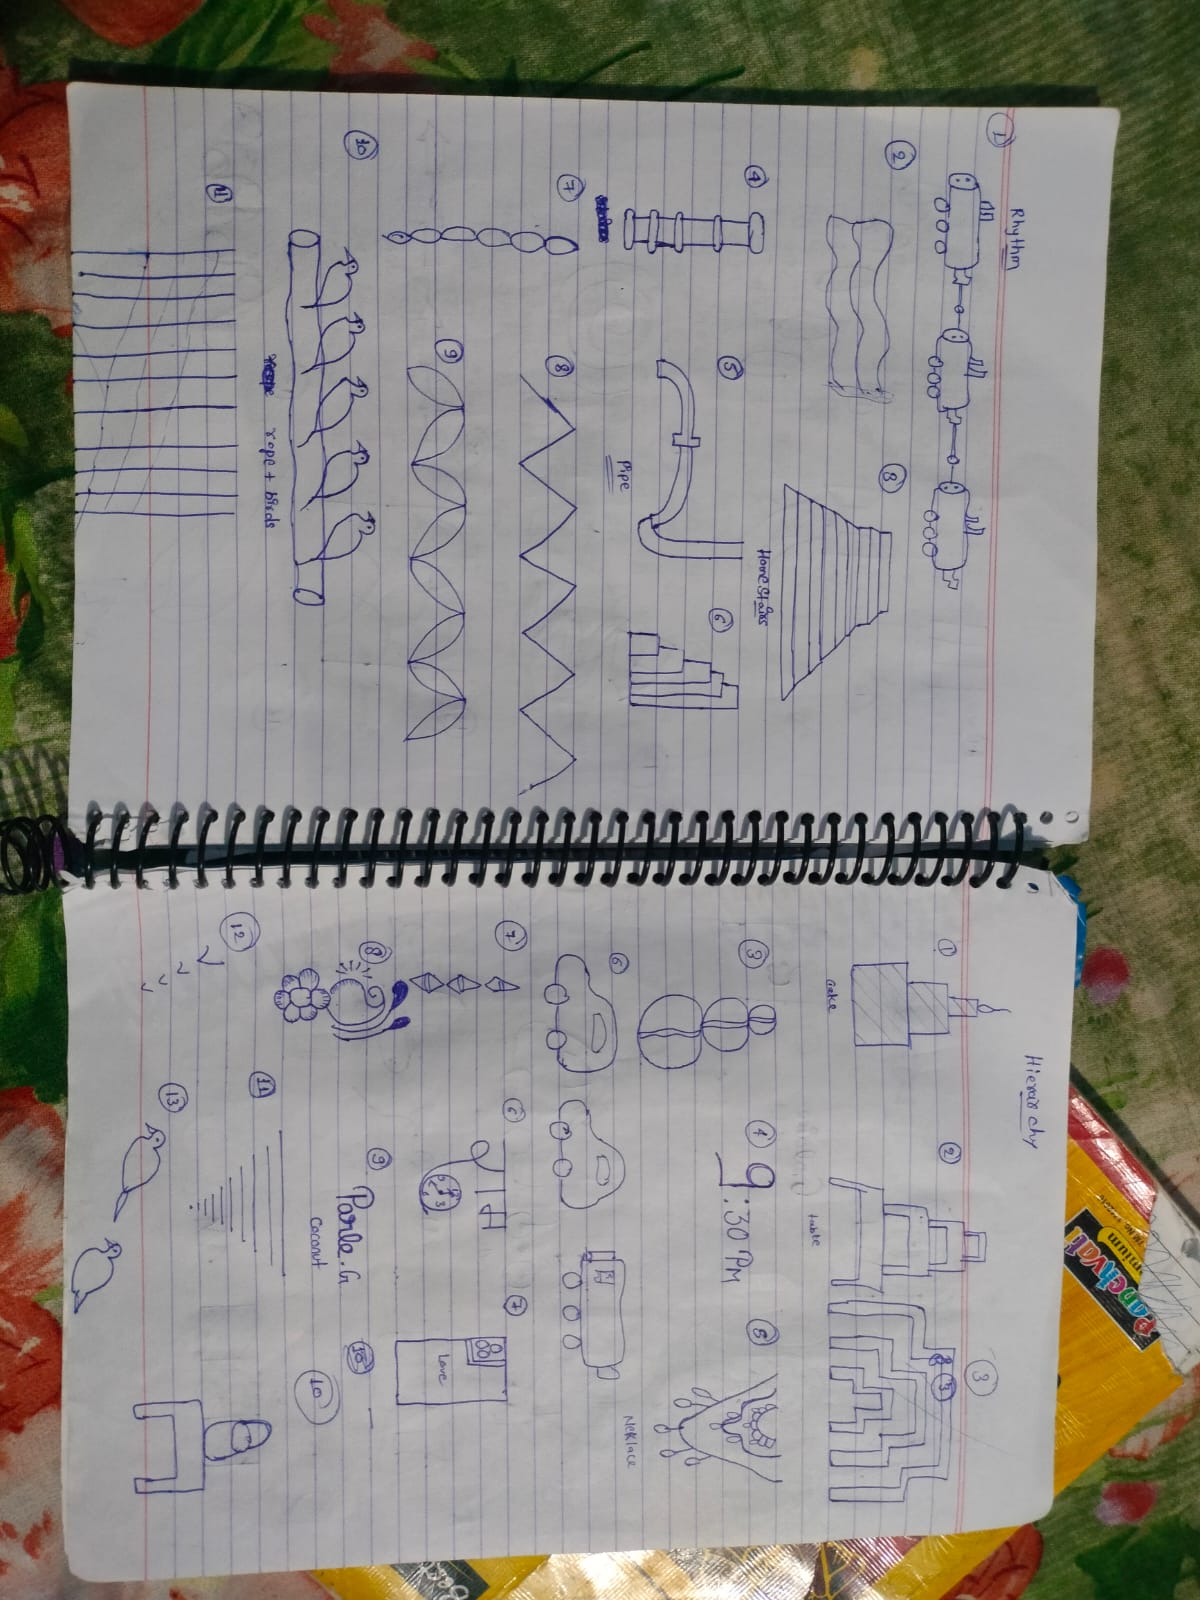 Rhythm
1
2
3
Home Stairs
4
5
Pipe
6
7
8
9
10
rope + birds
11
Hierarchy
1
Cake
2
table
3
3
3
4
9:30 Pm
5
Neklace
6
7
6
7
Love
8
9
Parle.G
Coconut
10
10
11
12
13
Panchvati